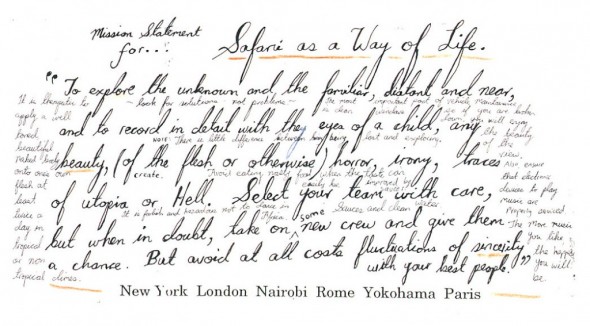 Mission Statement
for...
Safari as a Way of Life.
"To explore the unknown and the familiar, distant and near,
It is therapeutic to
look for solutions - not problems -
The most important part of vehicle maintenance
is clean windows
so if you are broken
down you will enjoy
the beauty
of the
view.
apply a well
loved
beautiful
naked body
onto ones own
flesh at
least
twice a
day in
tropical
or non
tropical climes.
and to record in detail with the eyes of a child, any
There is little difference between being lost and exploring.
beauty, (of the flesh or otherwise) horror, irony, traces
create.
Avoid eating
food when the taste can
easily be improved by
Sauces and clean water
of utopia or Hell. Select your team with care,
It is foolish and
not to dance in
Africa.
but when in doubt, take on some new crew and give them
a chance. But avoid at all costs fluctuations of sincerity
with your best people."
Also, ensure
that electronic
devices to play
music are
Properly serviced.
The more music
You like
the happier
you will
be
New York London Nairobi Rome Yokohama Paris